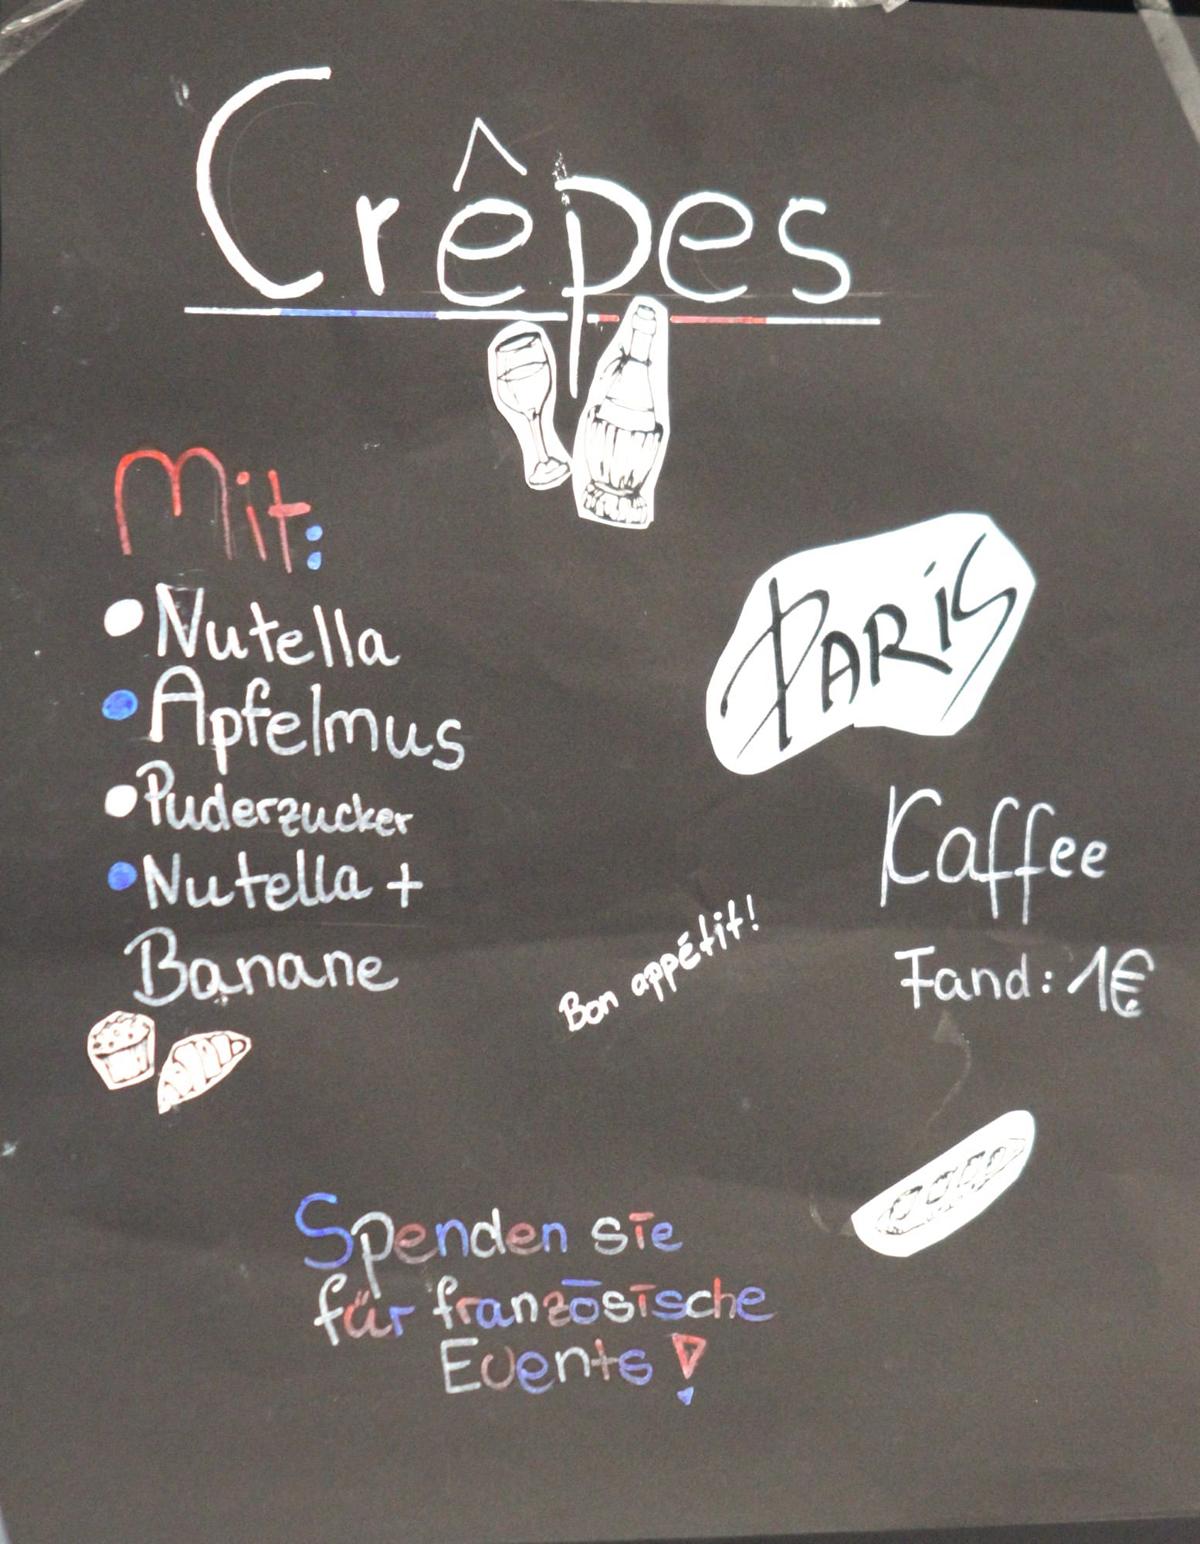 Crêpes
Mit:
•Nutella
•Apfelmus
•Puderzucker
•Nutella +
Banane
PARiS
Kaffee
Fand: 1€
Bon appétit!
Spenden sie
für französische
Events!